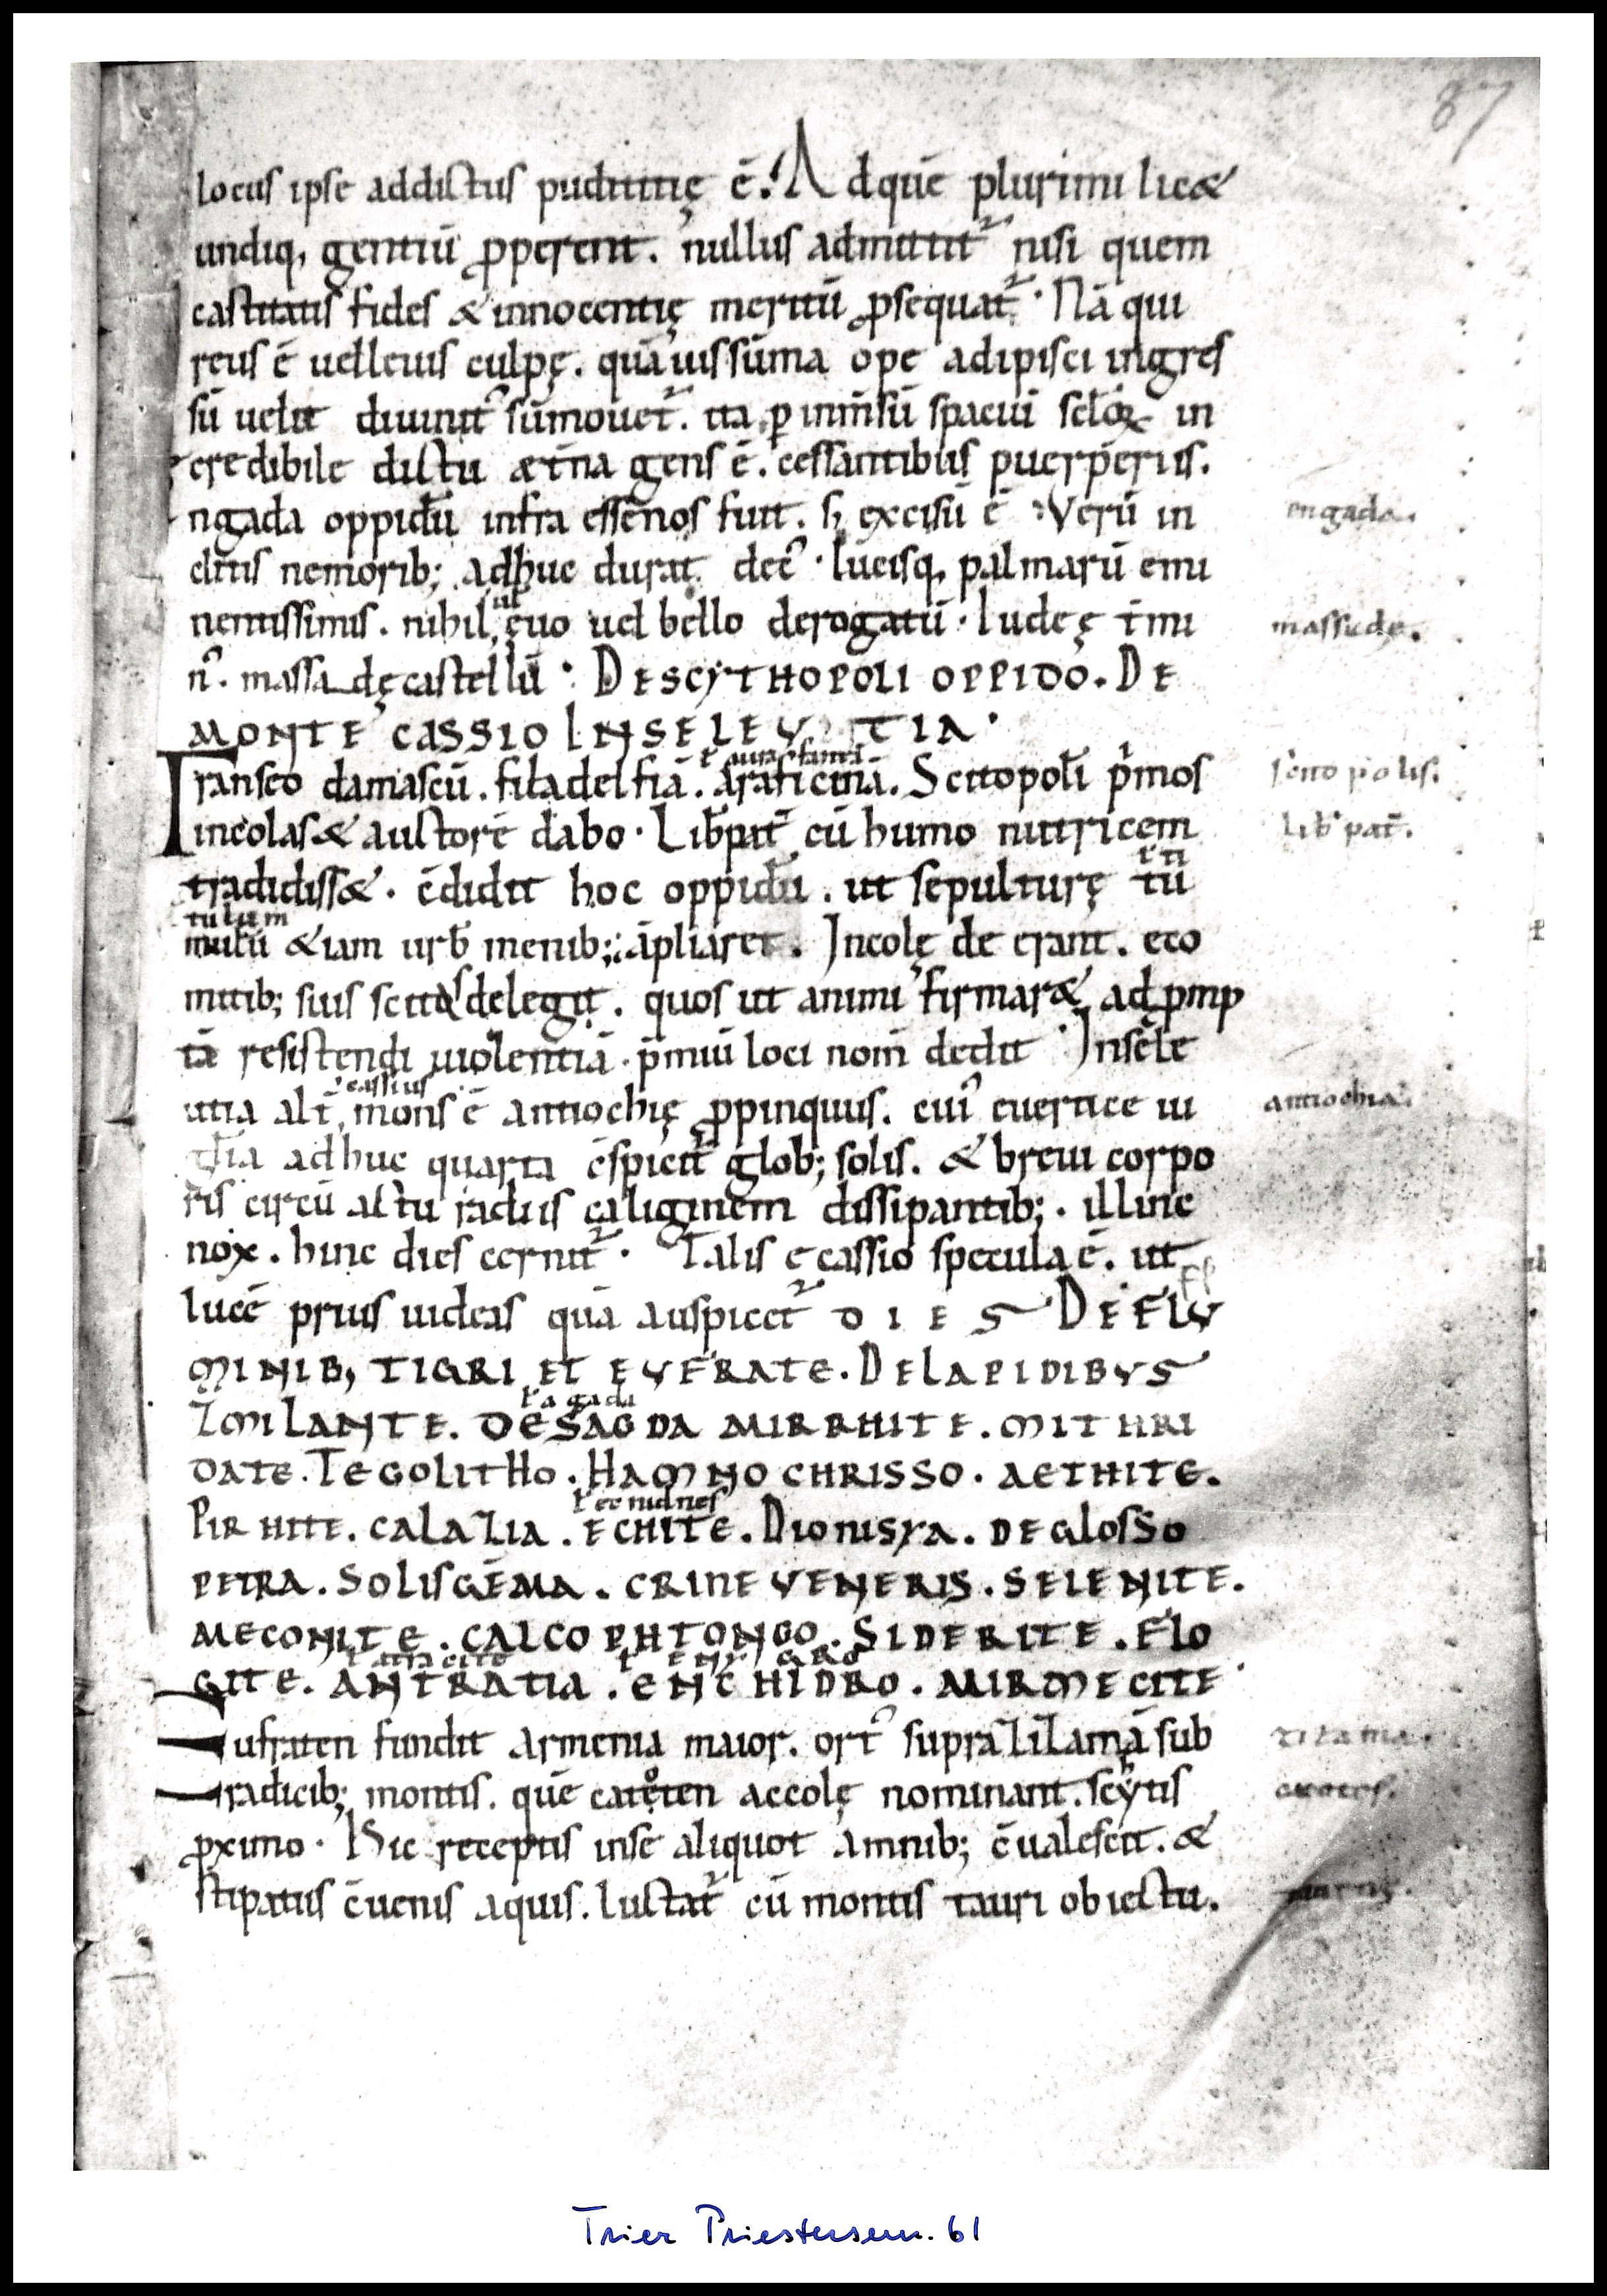 87
locus ipse addictus pudititię ē. Adquē plurimi lic&
undiq, gentiū ꝓperent. nullus admittit᷑ nisi quem
castitatis fides & innocentię meritū ꝓsequat᷑. Nā qui
reus ē uelleuis culpę. quāuis sūma ope adipisci ingres
sū uelit diuinit᷒ sūmouet᷑. ita ꝑ inm̄sū spaciū sclo℞ in
credibile dictu æt̄na gens ē. cessantibus puerperiis.
ngada oppidū infra essenos fuit. sꝫ excisū ē. Verū in
clitis nemorib; adhuc durat dec᷒. lucisq, palmarū emi
nentissimis. nihil ęuo uel bello derogatū. Iudeę t̄mi
n᷒. massa dę castellū. DE SCYTHOPOLI OPPIDO. DE
MONTE CASSIO IN SELEV TIA.
Transeo damascū. filadelfiā. araficinā. Scitopolī p̄mos
incolas & auctorē dabo. Lib̄ pat̄ cū humo nutricem
tradidiss&. c̄didit hoc oppidū. ut sepulturę tū
tulum
mulū &iam urb̄ menib; āpliaret. Incolę de erant. eco
mitib; suis scitas delegit. quos ut animi firmar& ad ꝓmp
tā resistendi uiolentiā. p̄miū loci nom̄ dedit. In sele
cassius
utia alt̄ mons ē antiochię ꝓpinquus. cui᷒ euertice ui
gl̄ia adhuc quarta c̄spicit᷑ glob; solis. & breui corpo
ris circū actu radiis caliginem dissipantib;. illinc
nox. hinc dies cernit᷑. Talis e cassio specula ē. ut
lucē prius uideas quā auspicet᷑ DIES DE FLV
MINIB, TIGRI ET EVFRATE. DE LAPIDIBVS
ł agada
ZMILANTE. DE SAGDA MIRRHITE. MITHRI
DATE. TEGOLITHO. HAMMOCHRISSO. AETHITE.
PIRHITE. CALAZIA. ECHITE. DIONISYA. DE GLOSSO
PETRA. SOLIS GĒMA. CRINE VENERIS. SELENITE.
MECONITE. CALCOPHTONGO. SIDERITE. FLO
GITE. ANTRATIA. ENCHIDRO. MIRMECITE.
Eufraten fundit armenia maior. ort᷒ supra zizamā sub
radicib; montis. quē catoten accolę nominant. scytis
ꝓximo. Hic receptis inse aliquot amnib; c̄ualescit. &
stipatus c̄uenis aquis. luctat᷑ cū montis tauri obiectu.
engada.
massade.
scito polis.
lib̄ pat̄.
antiochia.
zizama.
Trier Priestersem. 61